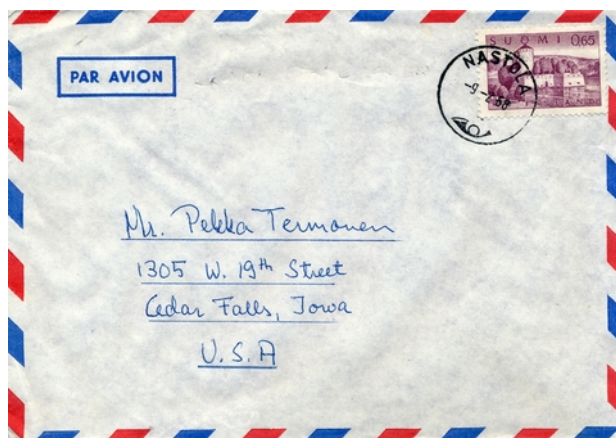 PAR AVION
SUOMI 0,65
NASTOLA
-9-2.68
Mr. Pekka Termonen
1305 W. 19th Street
Cedar Falls, Iowa
U.S.A